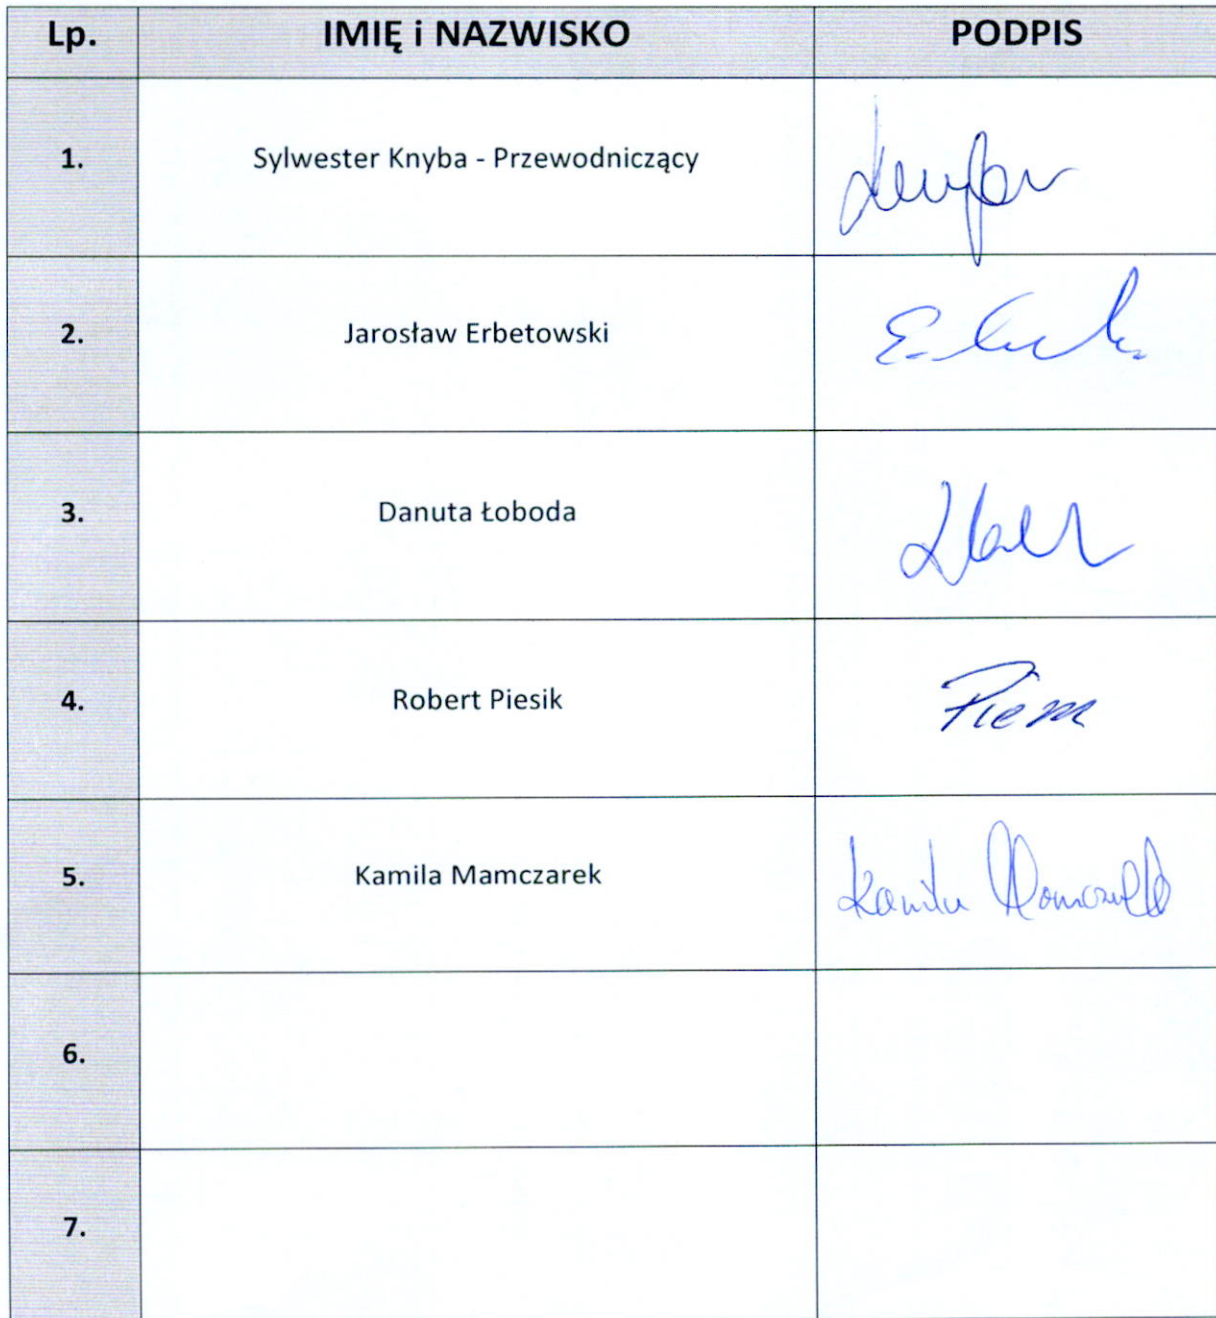 Lp. IMIĘ i NAZWISKO PODPIS
1. Sylwester Knyba - Przewodniczący
2. Jarosław Erbetowski
3. Danuta Łoboda
4. Robert Piesik
5. Kamila Mamczarek Kamila
6.
7.